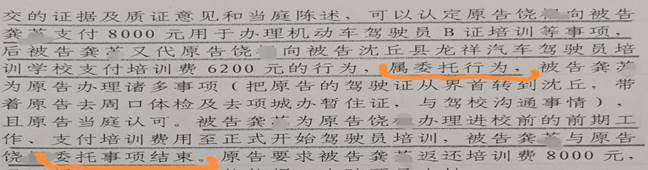 交的证据及质证意见和当庭陈述，可以认定原告饶 向被告
龚 支付8000元用于办理机动车驾驶员B证培训等事项，
后被告龚 又代原告饶 向被告沈丘县龙祥汽车驾驶员培
训学校支付培训费6200元的行为，属委托行为，被告龚
为原告办理诸多事项（把原告的驾驶证从界首转到沈丘，带
着原告去周口体检及去项城办暂住证，与驾校沟通事情），
且原告当庭认可。被告龚 为原告饶 办理进校前的前期工
作、支付培训费用至正式开始驾驶员培训，被告龚 与原告
饶 委托事项结束。原告要求被告龚 返还培训费8000元，